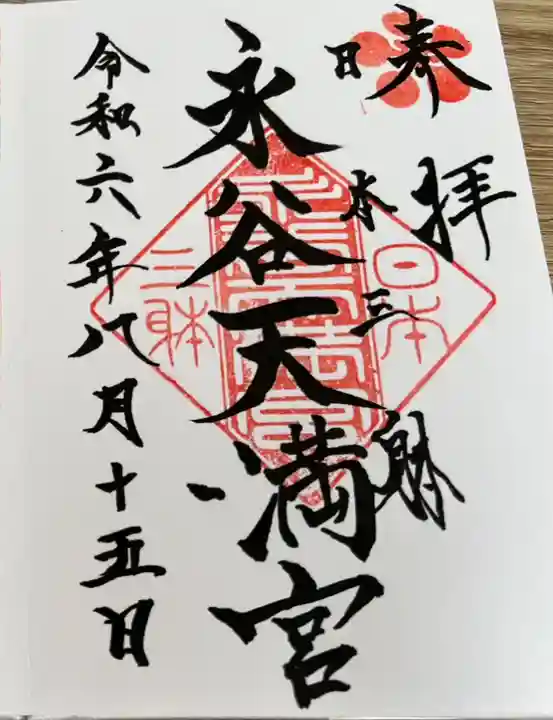 奉拝
日本三躰
永谷天満宮
令和六年八月十五日
日本
三躰